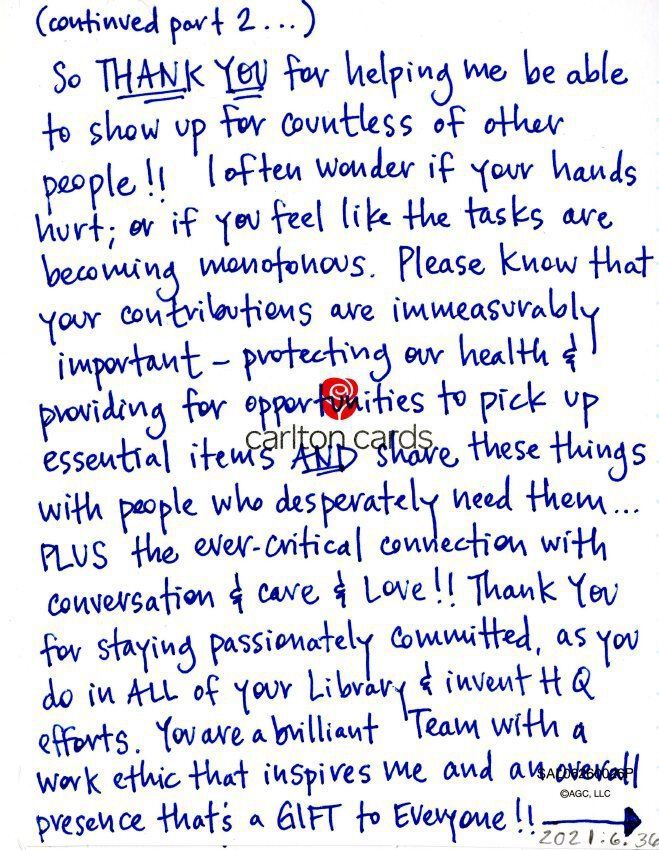 (continued part 2...)
So THANK YOU for helping me be able
to show up for countless of other
people!! I often wonder if your hands
hurt; or if you feel like the tasks are
becoming monotonous. Please know that
your contributions are immeasurably
important – protecting our health &
providing for opportunities to pick up
carlton cards
essential items AND share these things
with people who desperately need them...
PLUS the ever-critical connection with
conversation & care & Love!! Thank You
for staying passionately committed, as you
do in ALL of your Library & invent H Q
efforts. You are a brilliant Team with a
work ethic that inspires me and an overall
©AGC, LLC
presence that's a GIFT to Everyone!!
2021.6.36